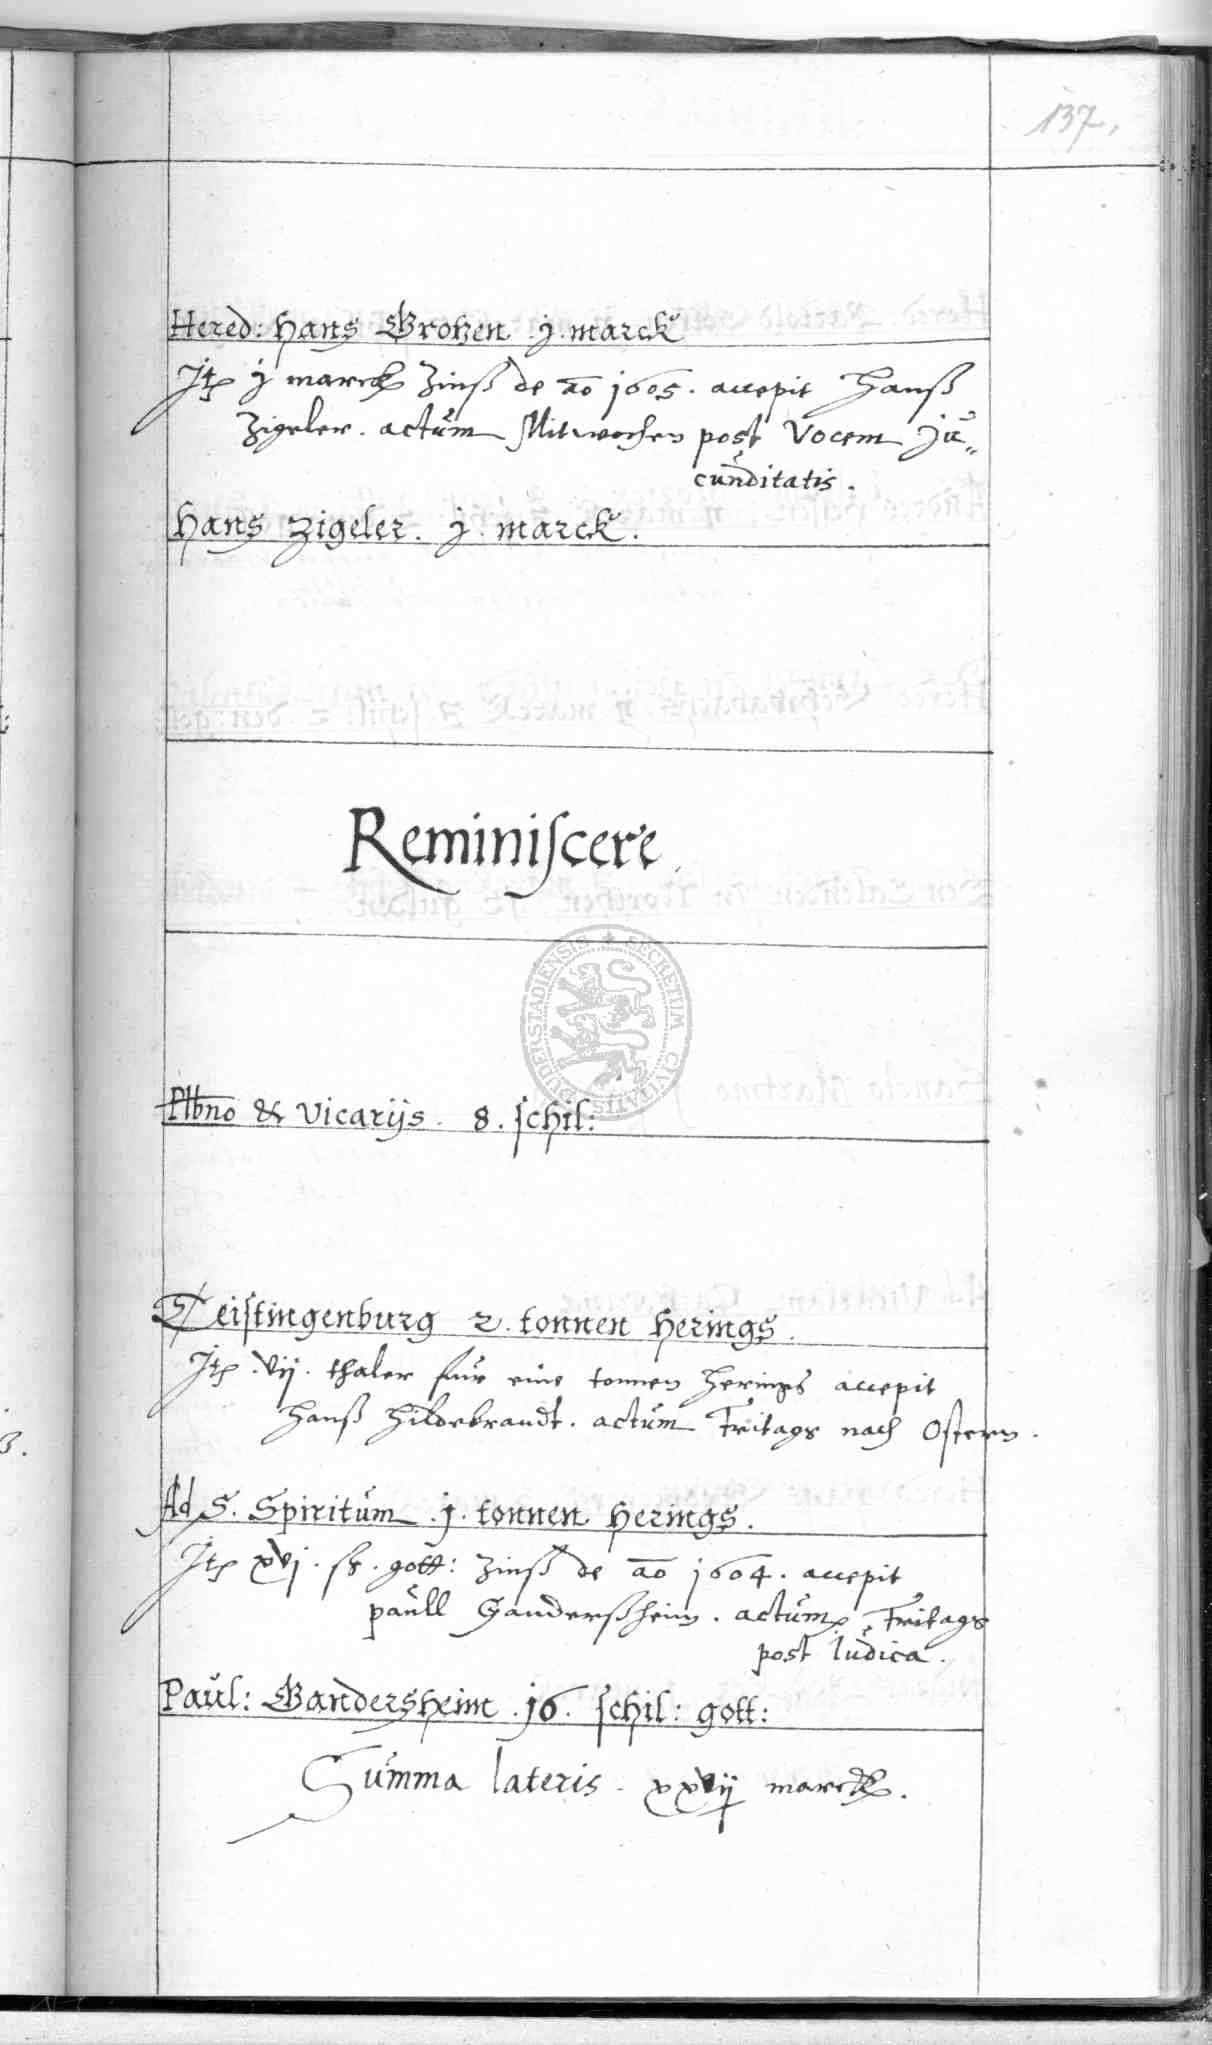 137.
Hered: Hans Grotzen .j. marck
Jtem j marck Zinß de ao 1605. accepit Hanß
Zigeler. actum Mitwochen post Vocem Ju„
cunditatis.
Hans Zigeler. j. marck.
Reminiscere
Plbno & vicarijs. 8. schil:
DUDERSTADIENSIS SECRETUM CIVITATIS
Teistingenburg 2. tonnen herings.
Jtem vij. thaler fur eine tonnen herings accepit
Hanß Hildebrandt. actum Fritags nach Ostern.
Ad S. Spiritum .j. tonnen herings.
Jtem xvj. ß. gott: Zinß de ao 1604. accepit
paull Ganderßheim. actum Fritags
post Iudica.
Paul: Gandersheim .16. schil: gott:
Summa lateris. marck.